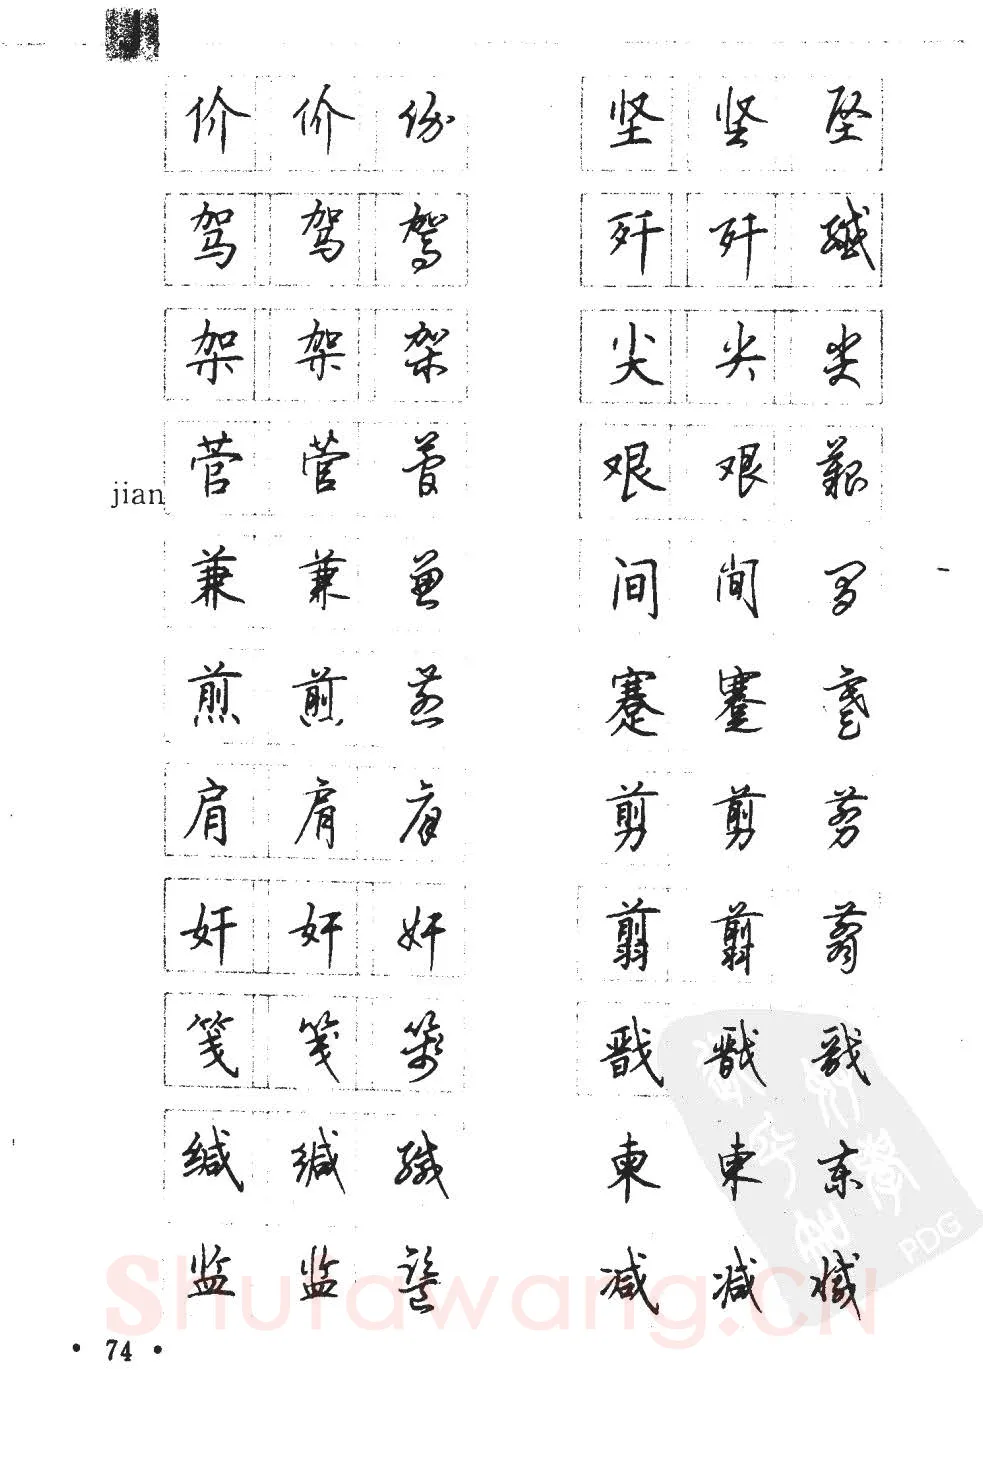 J
价 价 价
驾 驾 驾
架 架 架
jian
菅 菅 菅
兼 兼 兼
煎 煎 煎
肩 肩 肩
奸 奸 奸
笺 笺 笺
缄 缄 缄
监 监 监
坚 坚 坚
歼 歼 殲
尖 尖 尖
艰 艰 艱
间 间 间
蹇 蹇 蹇
剪 剪 剪
翦 翦 翦
戬 戬 戬
柬 柬 柬
减 减 减
Shufawang.CN
PDG
• 74 •